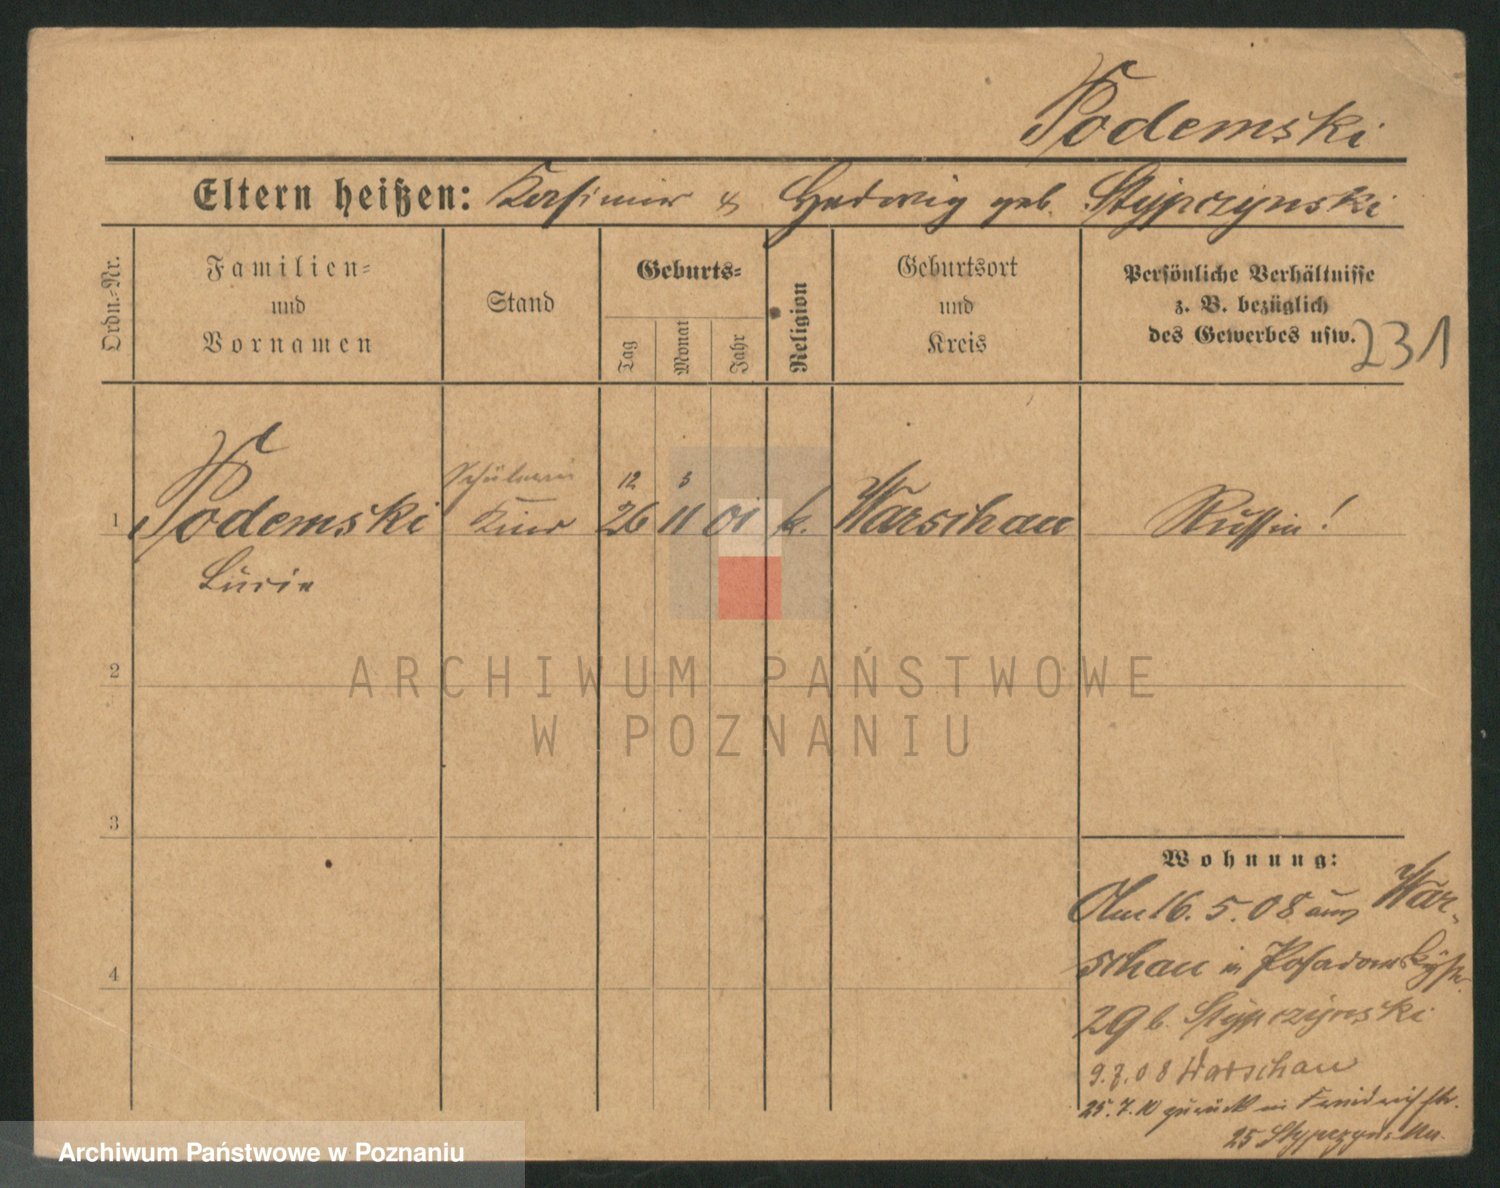 Podemski
Eltern heißen: Kasimir & Hedwig geb. Stypczynski
Ordn.-Nr.
Familien-
und
Vornamen
Stand
Geburts-
Tag
Monat
Jahr
Religion
Geburtsort
und
Kreis
Persönliche Verhältnisse
z. B. bezüglich
des Gewerbes usw.
231
Schülerin
12 3
1 Podemski Kind 26 11 01 k. Warschau Russin!
Lucie
2
3
4
Wohnung:
Am 16. 5. 08 aus War-
schau in Posadowskystr.
29 b. Stypczynski
9.7.08 Warschau
25.7.10 zurück in Friedrichstr.
25 Stypczynski
ARCHIWUM PAŃSTWOWE
W POZNANIU
Archiwum Państwowe w Poznaniu